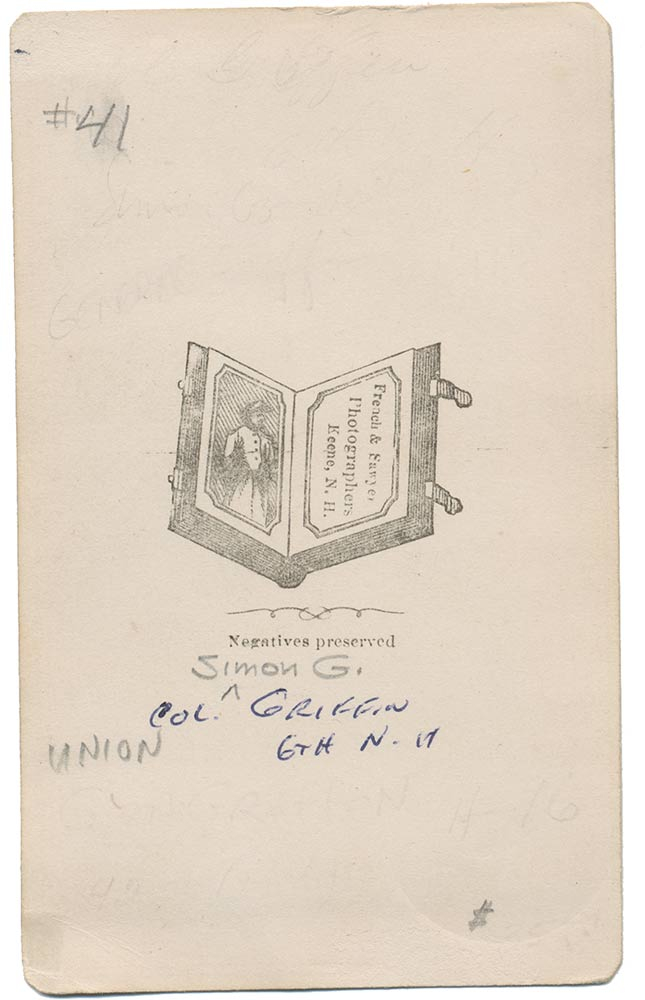 #41
French & Sawyer
Photographers
Keene, N. H.
Negatives preserved
Simon G.
^
COL. GRIFFIN
UNION
6TH N. H
#